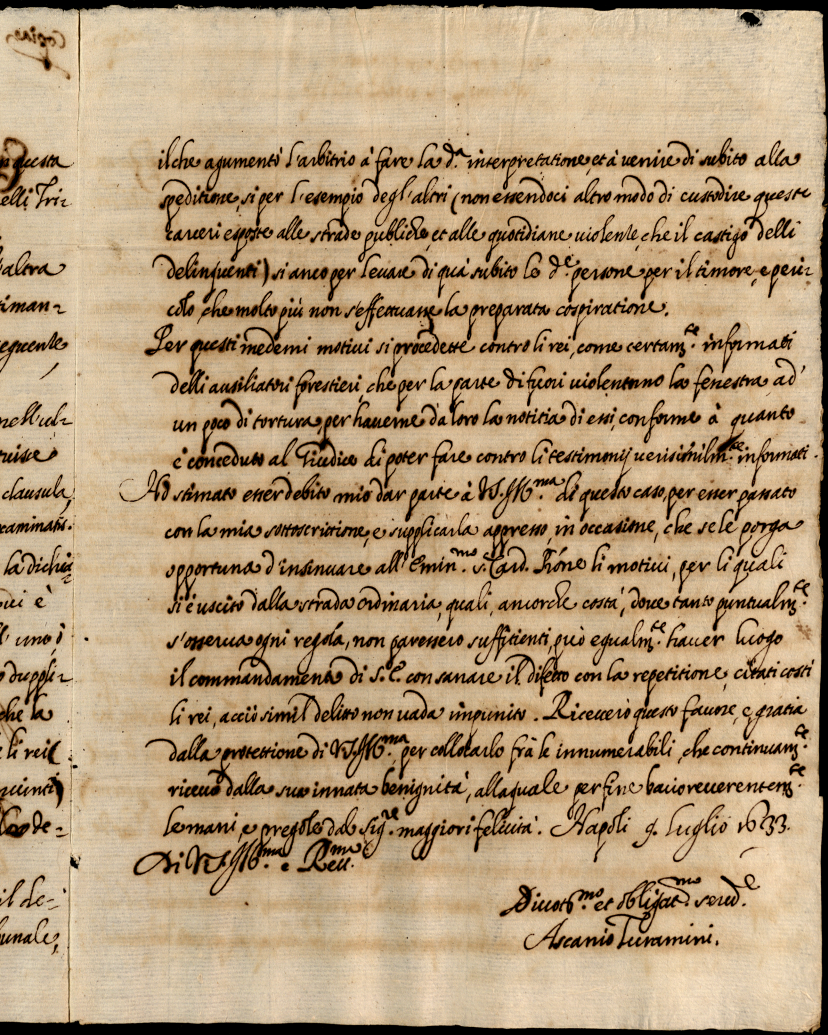 Copiar
in questa
elli Tri-
altra
timan-
equente
nell'ul-
tuisce
clausula
xaminatis.
la dichia-
uei è
l' uno, ò
duppli-
che la
e li rei
quinti)
de-
il de-
bunale,
il che agumentò l'arbitrio à fare la d.ª interpretatione, et à venire di subito alla
speditione, si per l'esempio degl'altri (non essendoci altro modo di custodire queste
carceri esposte alle strade publiche, et alle quotidiane violente, che il castigo delli
delinquenti) si anco per levare di quà subito le d.e persone per il timore, e peri-
colo, che molto più non s'effettuare la preparata cospiratione.
Per questi medemi motivi si procedette contro li rei, come certam.te informati
delli ausiliatori forestieri, che per la parte di fuori violentorno la fenestra, ad
un poco di tortura, per haverne da loro la notitia di essi, conforme à quanto
è conceduto al Giudice di poter fare contro li testimonij verisimilm.te informati.
Hò stimato esser debito mio dar parte à V.S. Ill.ma di questo caso, per esser passato
con la mia sottoscrittione, e supplicarla appresso, in occasione, che se le porga
opportuna d'insinuare all'Emin.mo s.r Card. Prōne li motivi, per li quali
si è uscito dalla strada ordinaria, quali, ancorche costà, dove tanto puntualm.te
s'osserva ogni regola, non paressero suffitienti, può egualm.te haver luogo
il commandamento di S. E. con sanare il difetto con la repetitione, citati costì
li rei, acciò simil delitto non vada impunito. Riceverò questo favore, e gratia
dalla protettione di V.S. Ill.ma per collocarlo frà le innumerabili, che continuam.te
ricevo dalla sua innata benignità, alla quale per fine bacio reverentem.te
le mani, e pregole dal Sig.re maggiori felicità. Napoli 9. Luglio 1633.
Di V.S. Ill.ma e Rev.ma
Divotis.mo et obligat.mo serv.e
Ascanio Turamini.